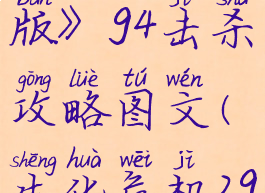 版》94击杀
gōng lüè tú wén
攻略图文(
shēng huà wēi jī
生化危机29